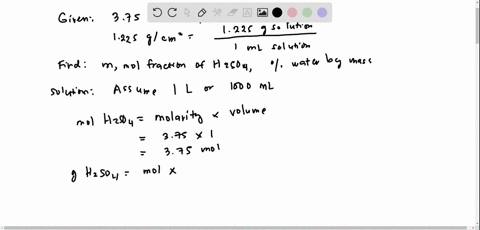 Given: 3.75
1.225 g/cm³ = 1.225 g solution
1 mL solution
Find: m, mol fraction of H2SO4, % water by mass
Solution: Assume 1 L or 1000 mL
mol H2SO4 = molarity x volume
= 3.75 x 1
= 3.75 mol
g H2SO4 = mol x